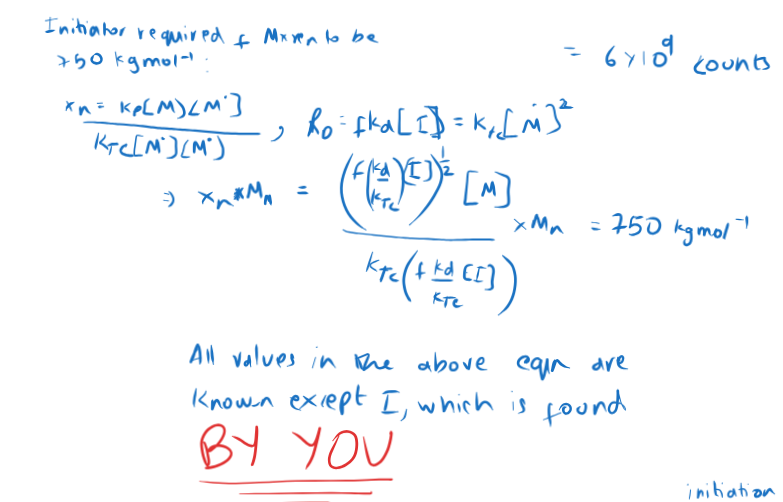 Initiator required f Mxxn to be
750 kgmol⁻¹:
= 6×10⁹ counts
xn = Kp[M][M·] / KTC[M·][M·] , Ro = fkd[I] = Ktc[M·]²
⇒ xn*Mn = (f(kd/kTC)[I])^½ [M] / kTC(f kd/kTC [I]) × Mn = 750 kgmol⁻¹
All values in the above eqn are
Known except I, which is found
BY YOU
initiation